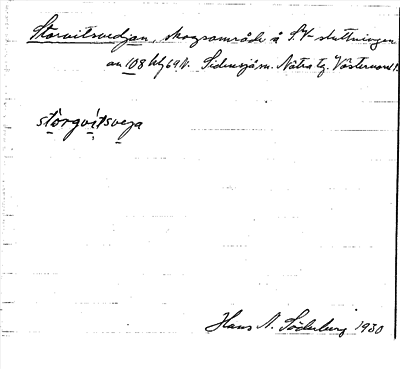 Storvitsvedjan, skogsområde å SV-sluttningen
av 108 blg 69 V. Sidensjö sn. Nätra tg. Västernorrl. l.
storgvitsveja
Hans N. Söderberg 1930